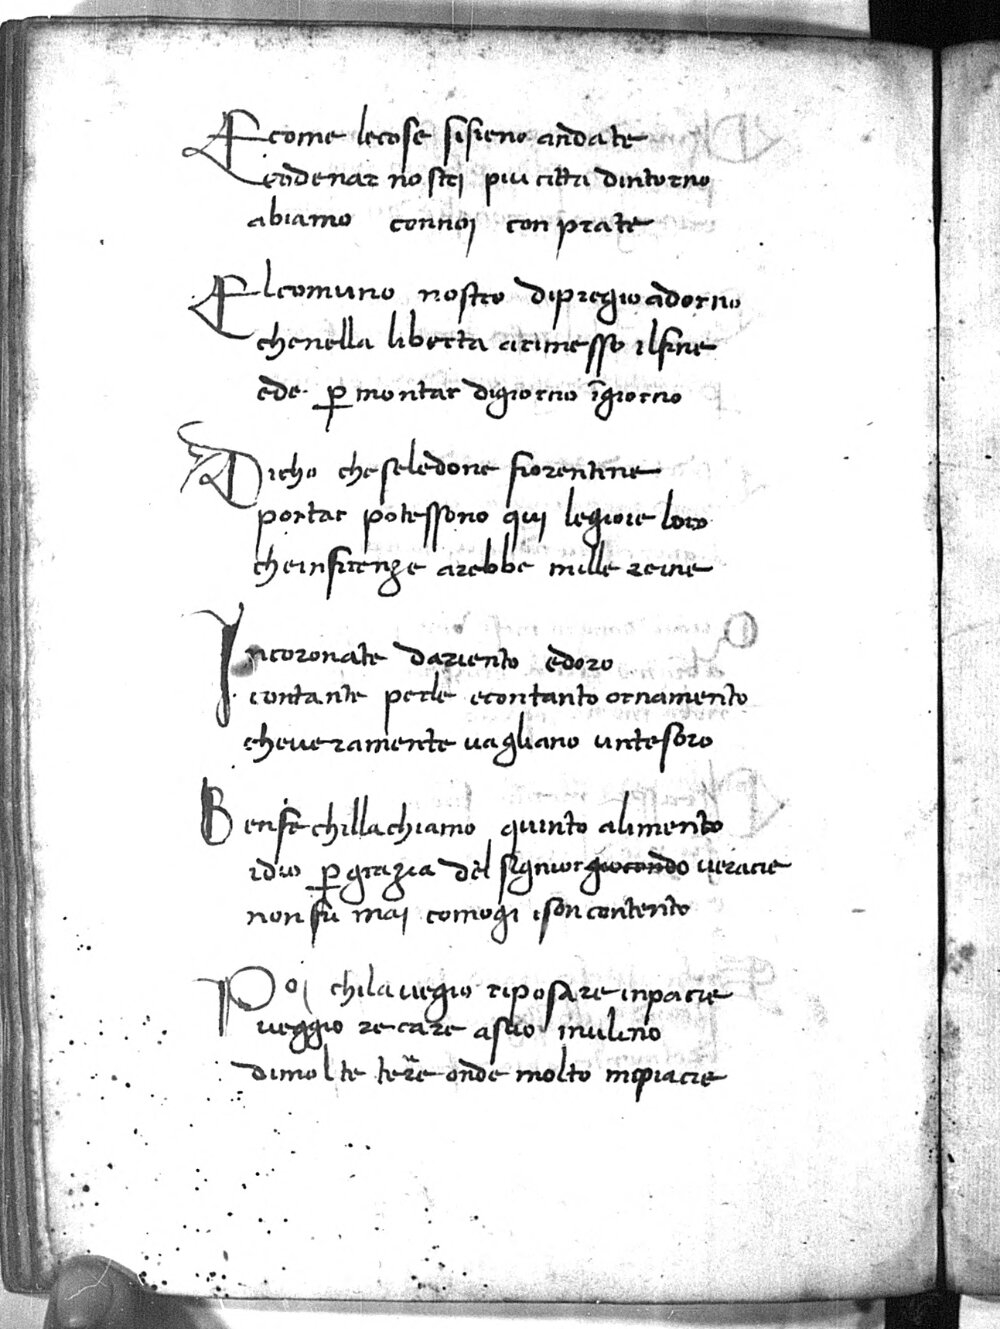 E come lecose sisieno andate
codenar nostri piu citta dintorno
abiamo connoj conprate
El comuno nostro dipregio adorno
chenella liberta arimesso ilfine
ede p montar digiorno īgiorno
Dicho che seledone fiorentine
portar potessono quj legioie loro
cheinfirenze arebbe mille reine
Incoronate dariento edoro
contante perle econtanto ornamento
cheveramente vagliano untesoro
Bense chillachiamo quinto alimento
idio p grazia del signior giocondo veracie
non fu mai comogi ison contento
Poj chila vegio riposare inpacie
veggio recare asuo mulino
dimolte terre onde molto mipiacie